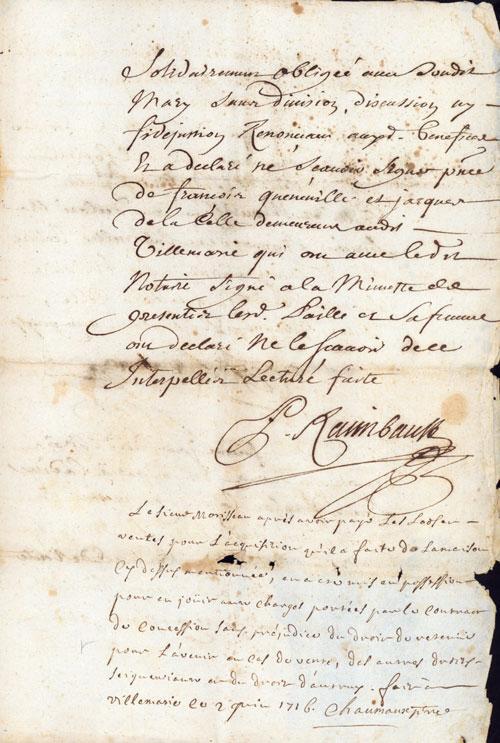 Solidairement obligée avec Soudit
Mary Sans division, discussion ny
fidejussion Renoncant auxd. benefices
Et a declaré ne Scauoir Signer pñce
de francois quenneuille et jacques
de la Celle demeurans audit
Villemarie qui ont avec ledit
Notaire Signé a la Minutte de
presentes led. Paillé et Sa femme
ont declaré Ne le Scauoir de ce
Interpellés Lecture faite
P. Raimbault
Le Sieur Morisseau aprés avoir payé Les Lods en
ventes pour L'acquisition qu'il a faite de
Cy dessus mentionnée, en a eté mis en possession
pour en joüir aux charges portées par le Contract
de Concession Sans préjudice du droit de retenüe
pour L'avenir en cas de vente, des autres droits
Seigneuriaux et du droit d'autruy. fait a
villemarie le 2 Juin 1716. Chaumaux ptre